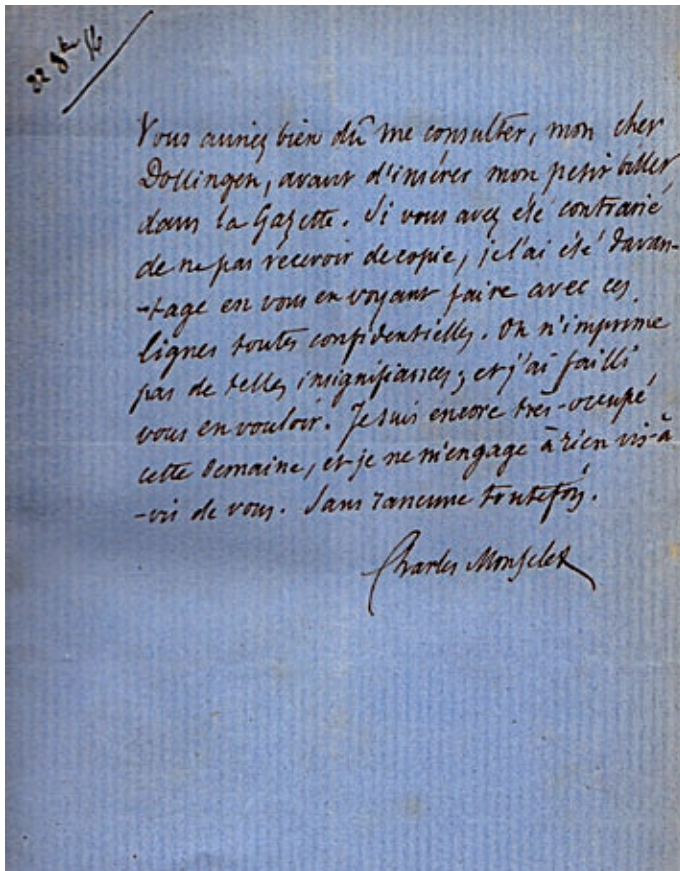 Vous auriez bien dû me consulter, mon cher
Dollingen, avant d'insérer mon petit billet
dans la Gazette. Si vous avez été contrarié
de ne pas recevoir de copie, je l'ai été davan-
-tage en vous en voyant faire avec ces
lignes toutes confidentielles. On n'imprime
pas de telles insignifiances; et j'ai failli
vous en vouloir. Je suis encore très-occupé
cette semaine, et je ne m'engage à rien vis-à
-vis de vous. Sans rancune toutefois.
Charles Monselet